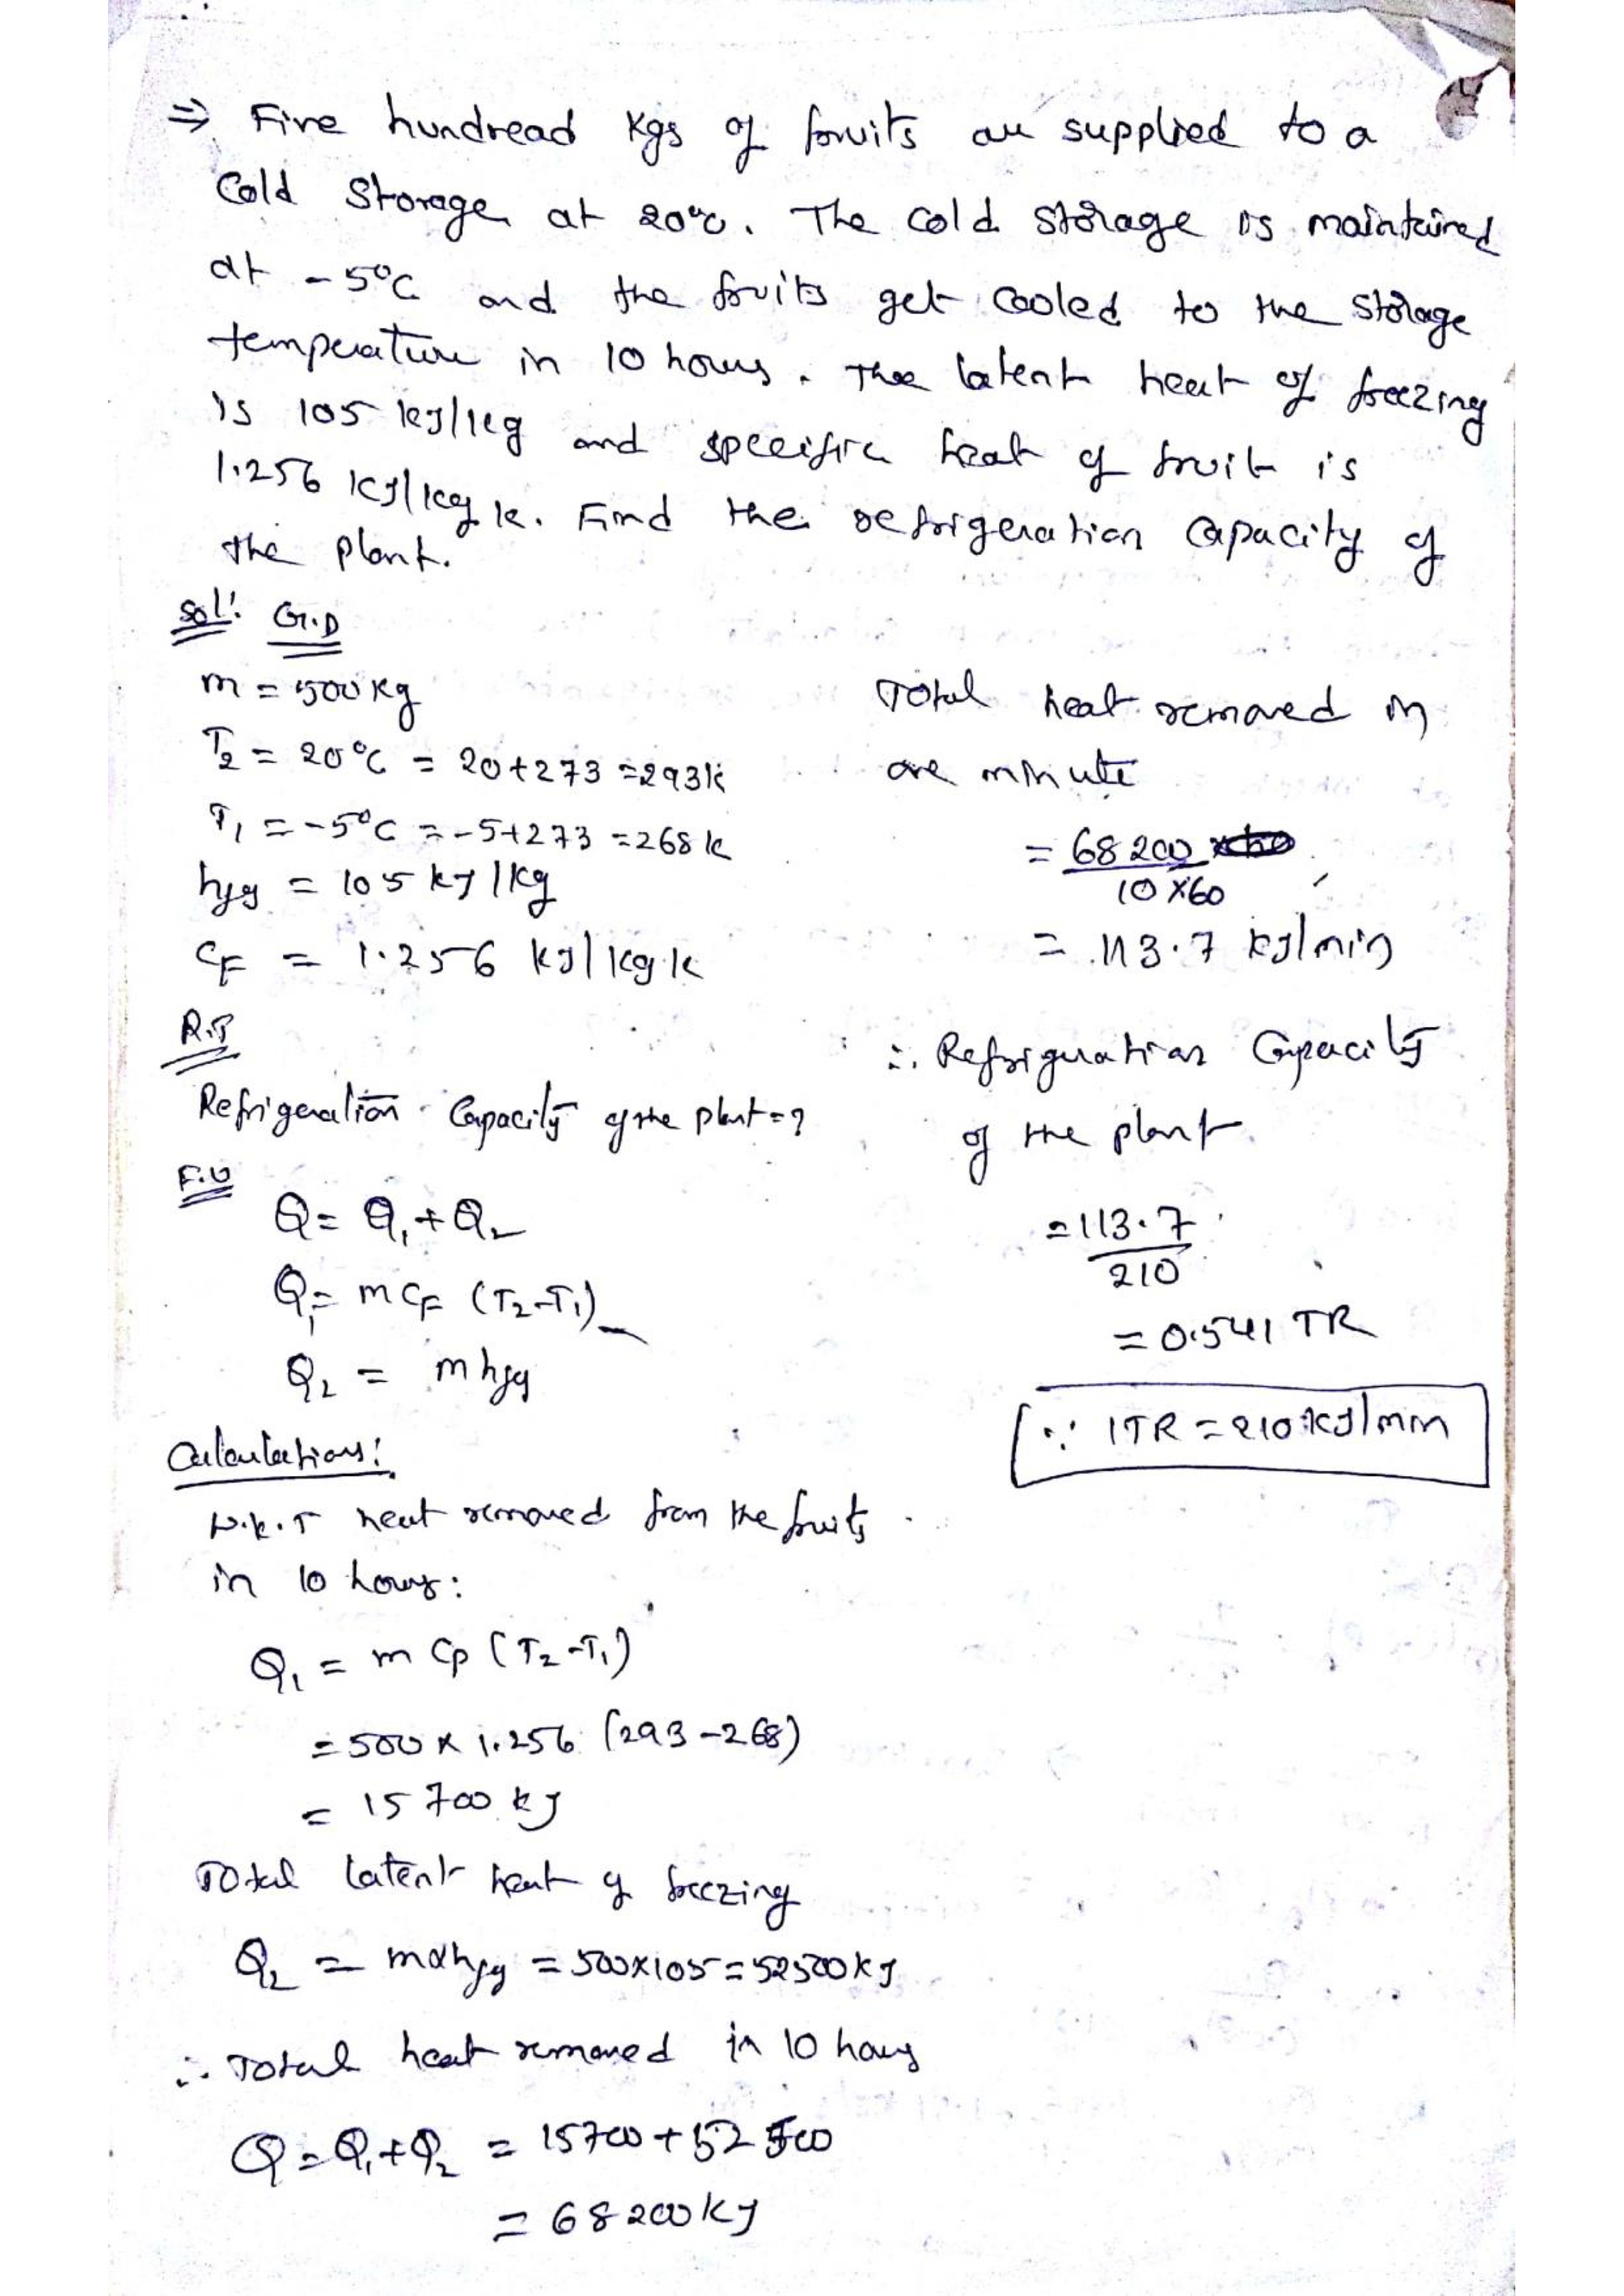 ⇒ Five hundread kgs of fruits are supplied to a
Cold Storage at 20°C. The cold storage is maintained
at -5°C and the fruits get cooled to the storage
temperature in 10 hours. The latent heat of freezing
is 105 kJ/kg and specific heat of fruit is
1.256 kJ/kg k. Find the refrigeration capacity of
the plant.
Sol: G.D
m = 500 kg
T₂ = 20°C = 20+273 = 293k
T₁ = -5°C = -5+273 = 268k
hfg = 105 kJ/kg
CF = 1.256 kJ/kg k
R.P
Refrigeration Capacity of the plant = ?
F.U
Q = Q₁ + Q₂
Q₁ = m CF (T₂-T₁)
Q₂ = m hfg
Calculations:
W.K.T heat removed from the fruits
in 10 hours:
Q₁ = m Cp (T₂-T₁)
= 500 x 1.256 (293-268)
= 15700 kJ
Total latent heat of freezing
Q₂ = mxhfg = 500x105 = 52500 kJ
∴ Total heat removed in 10 hours
Q = Q₁+Q₂ = 15700 + 52500
= 68200 kJ
Total heat removed in
one minute
= 68200
10 x60
= 113.7 kJ/min
∴ Refrigeration Capacity
of the plant
= 113.7
210
= 0.541 TR
∵ 1TR = 210 kJ/min